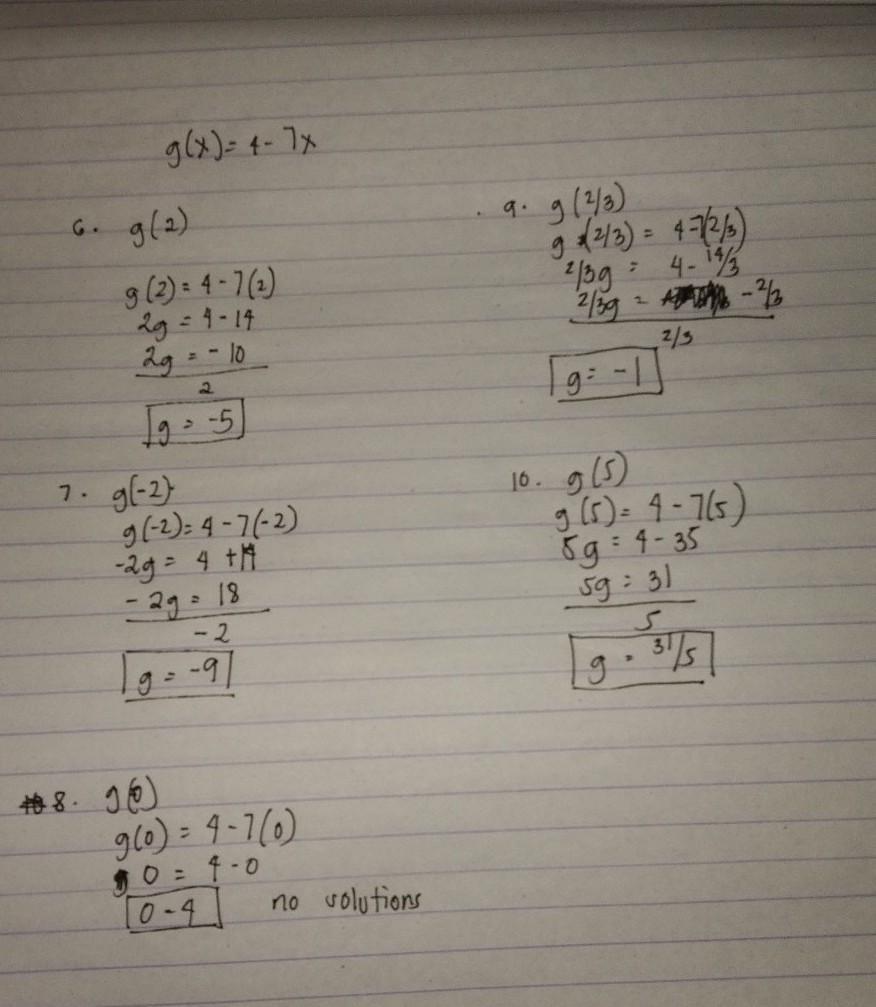 g(x)= 4-7x
6. g(2)
g(2)= 4-7(2)
2g = 4-14
2g = -10
2
g = -5
7. g(-2)
g(-2)= 4-7(-2)
-2g = 4 +14
-2g = 18
-2
g = -9
8. g(0)
g(0) = 4-7(0)
0 = 4-0
0-4 no solutions
9. g(2/3)
g (2/3) = 4-7(2/3)
2/3g = 4-14/3
2/3g = -2/3
2/3
g= -1
10. g(5)
g(5)= 4-7(5)
5g = 4-35
5g = 31
5
g = 31/5